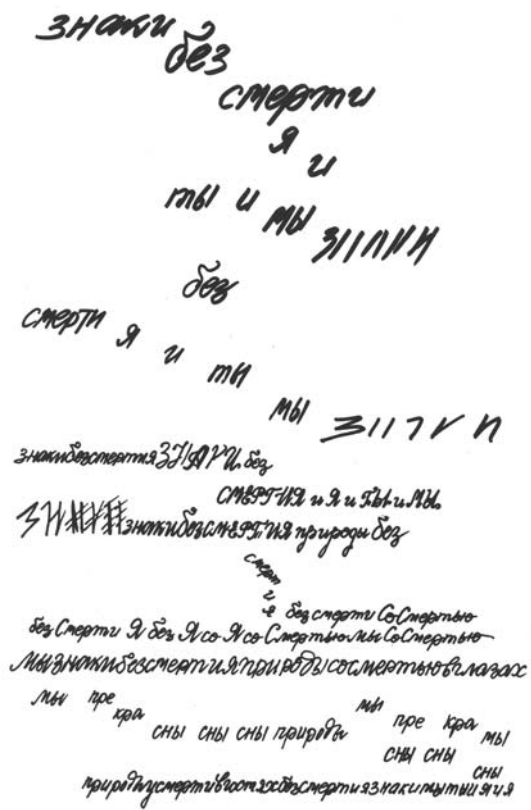 знаки
без
смерти
я
и
ты и мы
без
смерти я и ты
мы
знакибезсмертия без
СМЕРТИЯ и Я и ТЫ и МЫ
знакибезСМЕРТИЯ природы без
смерти
я
без смерти Со Смертью
без Смерти Я без Я со Я со Смертью мы Со Смертью
МЫзнакибезсмертияприродысосмертьювглазах
мы пре кра сны сны сны природы
мы пре кра мы сны сны сны
природыусмертивгостяхбезсмертиязнакимытыияия